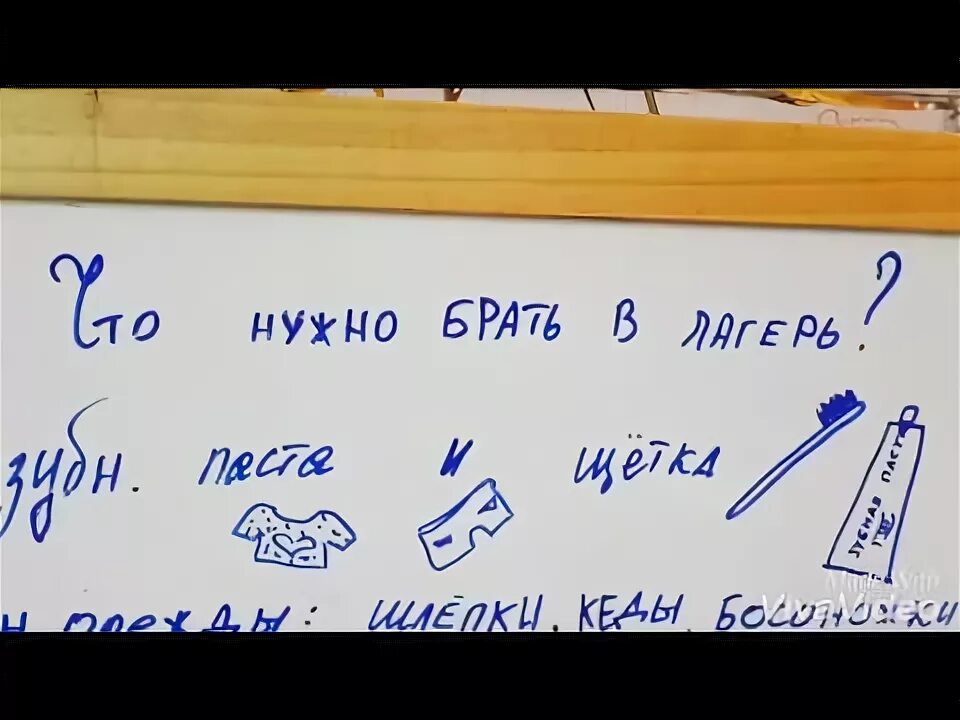 Что нужно брать в лагерь?
зубн. паста и щётка
зубная паст
одежды: шлёпки. кеды босоножки
VivaVideo